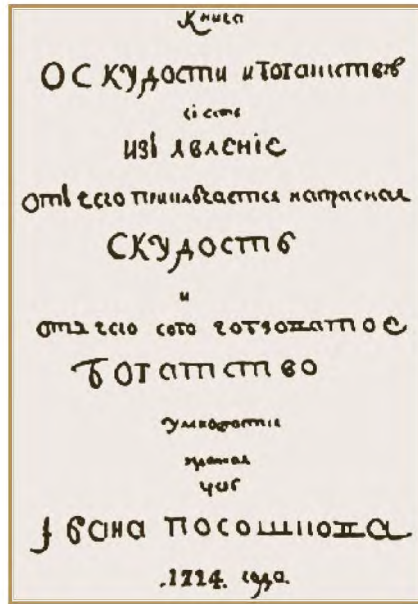 Книга
О СКУДОСТИ и богатствѣ
сi есть
изъявленiе
отъ чего приключается напрасная
СКУДОСТЬ
и
отъ чего
богатство

Ивана Посошкова
.1724. года.